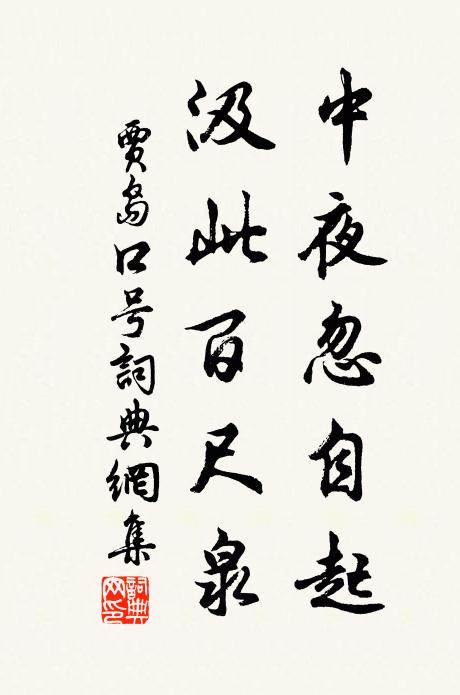 中夜忽自起
汲此百尺泉
賈島口号詞典網集
詞典网印